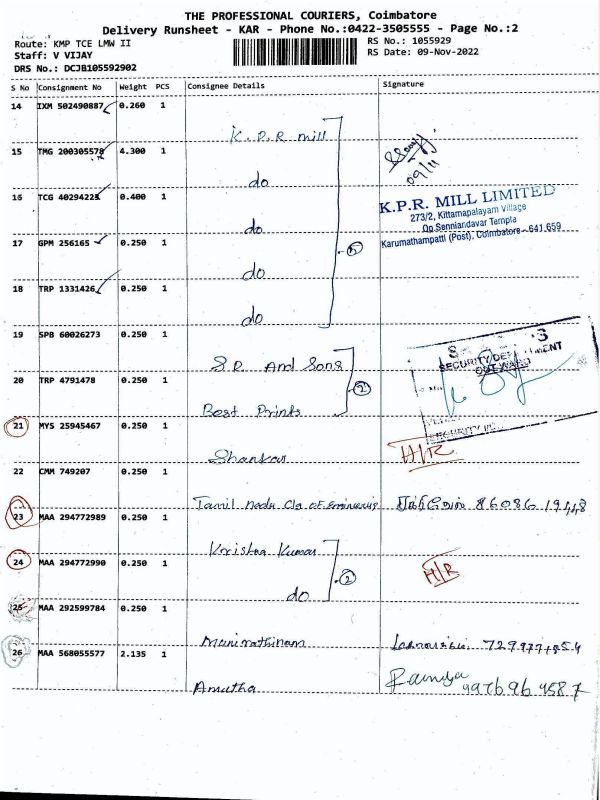 THE PROFESSIONAL COURIERS, Coimbatore
Delivery Runsheet - KAR - Phone No.:0422-3505555 - Page No.:2
Route: KMP TCE LMW II
RS No.: 1055929
Staff: V VIJAY
RS Date: 09-Nov-2022
DRS No.: DCJB105592902
S No Consignment No Weight PCS Consignee Details Signature
14 IXM 502490887 0.260 1 K.P.R mill
15 TMG 200305578 4.300 1 do
09/11
16 TCG 40294225 0.400 1 do
K.P.R. MILL LIMITED
273/2, Kittampalayam Village
Opp Senniandavar Temple
Karumathampatti (Post), Coimbatore - 641 659
17 GPM 256165 0.250 1 do
5
18 TRP 1331426 0.250 1 do
19 SPB 60026273 0.250 1 S.R. And Sons
SECURITY DEPARTMENT
OUTWARD
20 TRP 4791478 0.250 1 Best Prints
2
21 MYS 25945467 0.250 1 Shankar
H/R
22 CMM 749207 0.250 1 Tamil nadu Clg of Engineering 86086 19448
23 MAA 294772989 0.250 1 Krishna Kumar
24 MAA 294772990 0.250 1 do
2
H/R
25 MAA 292599784 0.250 1 Manirathinam
26 MAA 568055577 2.135 1 Amutha
Ramya
99769 69587